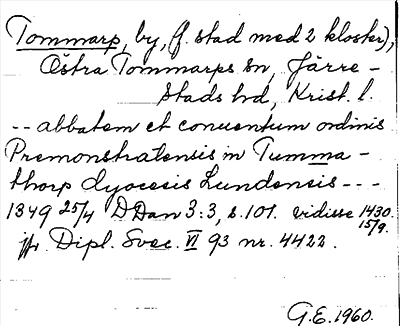 Tommarp, by, (f. stad med 2 kloster),
Östra Tommarps sn, Järre-
stads hd, Krist. l.
-- abbatem et conuentum ordinis
Premonstratensis in Tumma-
thorp dyocesis Lundensis ---
1349 25/4 DDan 3:3, s. 101. vidisse 1430 15/9.
jfr Dipl. Svec. VI 93 nr. 4422.
G.E. 1960.